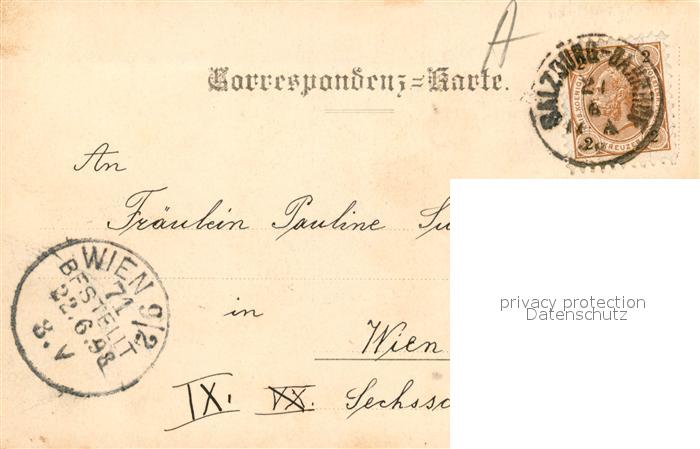 A
Correspondenz-Karte.
SALZBURG-BAHNHOF
21
6
2 2
2 KREUZER 2
An
Fräulein Pauline Su
WIEN 9/2
71
BESTELLT
22.6.98
8.V
in
Wien
IX. XX. Sechssc
privacy protection
Datenschutz